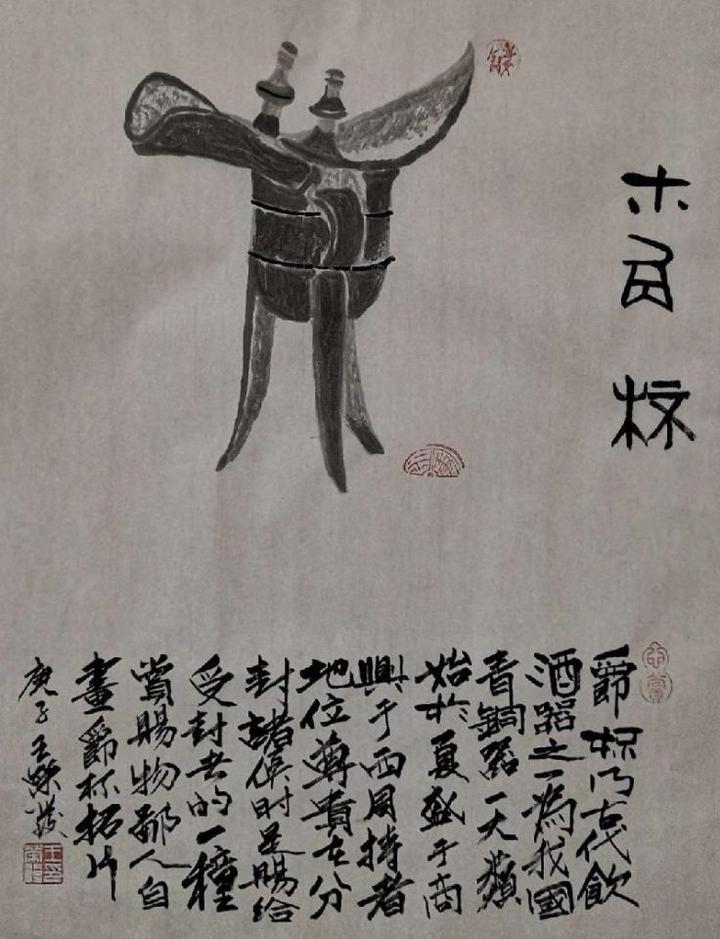 爵
杯
爵杯乃古代飲
酒器之一為我國
青銅器一大類
始於夏盛于商
興于西周持者
地位尊貴在分
封諸侯時是賜給
受封者的一種
賞賜物鄙人自
畫爵杯拓片
庚子王